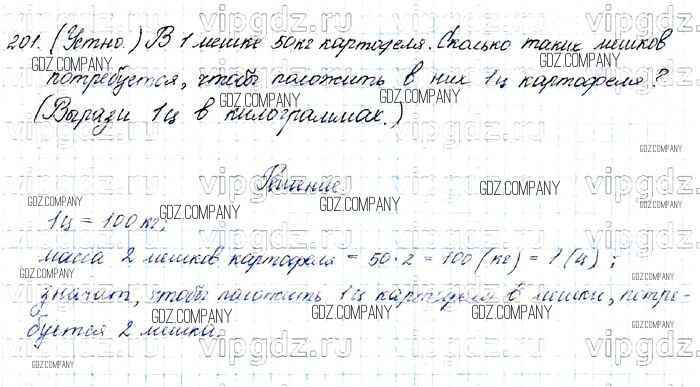 201. (Устно.) В 1 мешке 50кг картофеля. Сколько таких мешков
потребуется, чтобы положить в них 1ц картофеля?
(Вырази 1ц в килограммах.)
Решение
1ц = 100 кг;
масса 2 мешков картофеля = 50·2 = 100 (кг) = 1 (ц);
значит, чтобы положить 1ц картофеля в мешки, потре-
буется 2 мешка.
vipgdz.ru
GDZ.COMPANY